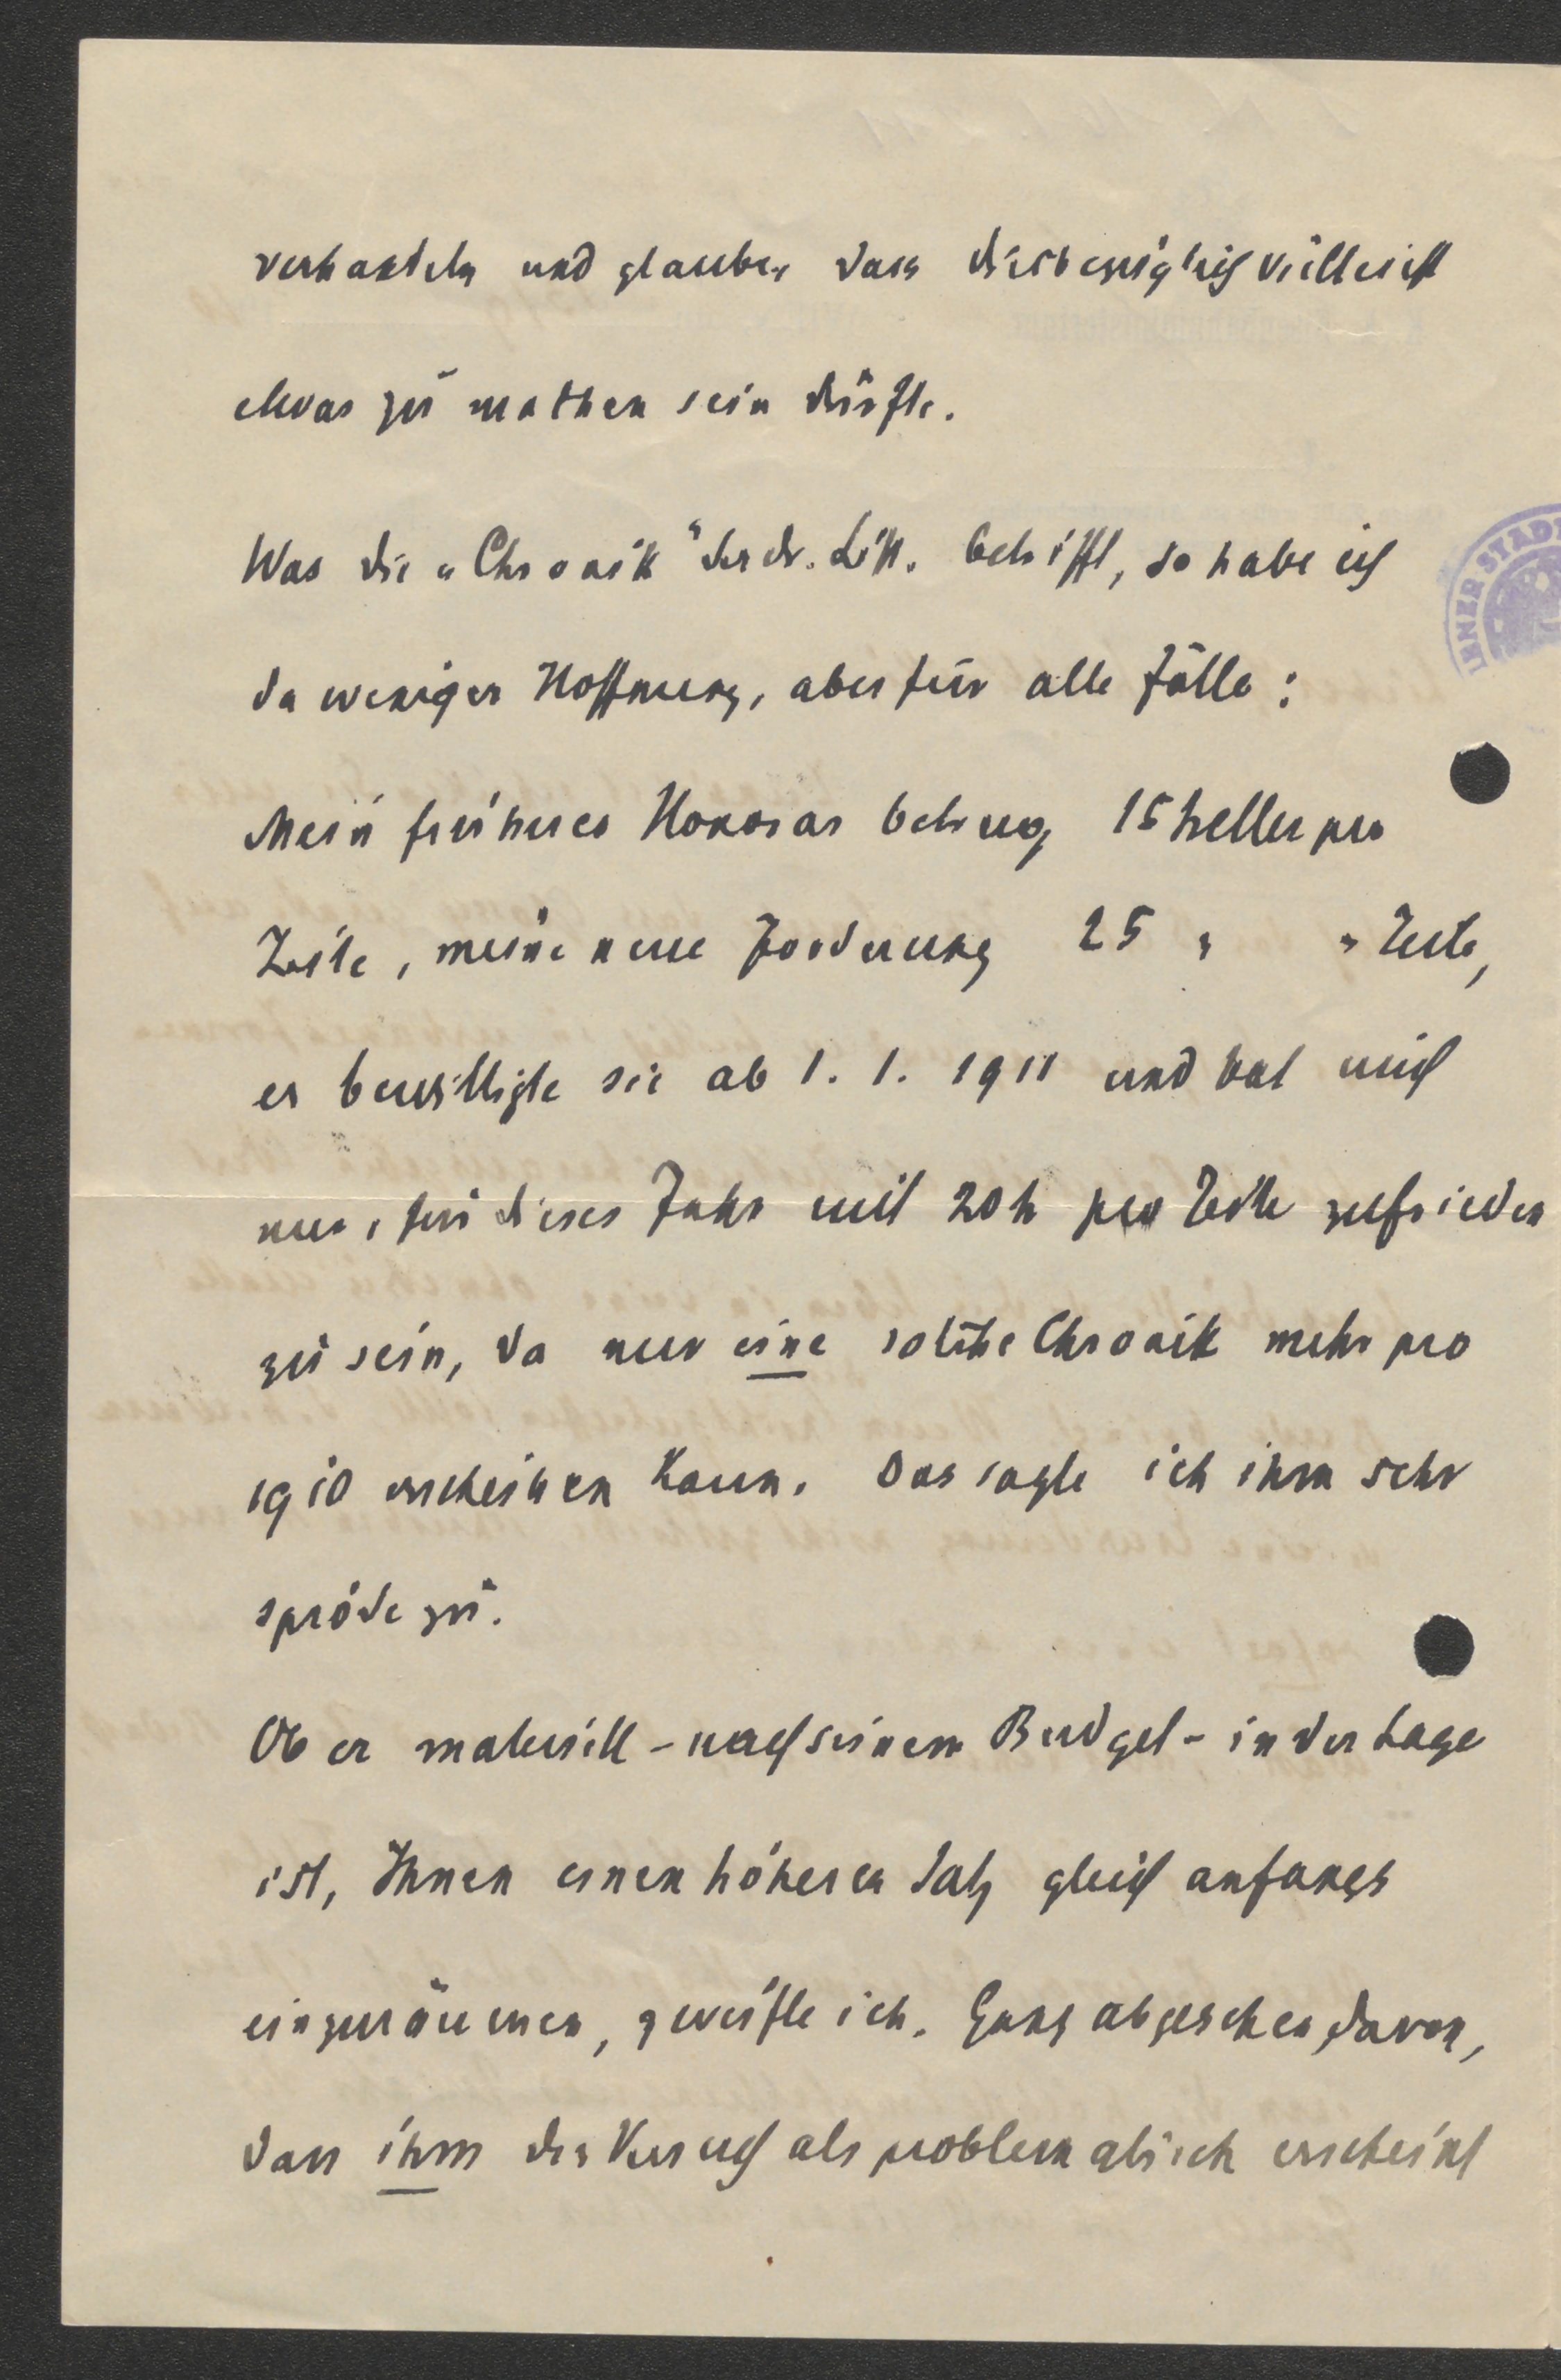 verhandeln und glaube, dass diesbezüglich vielleicht
etwas zu machen sein dürfte.
Was die „Chronik" der dr. Litt. betrifft, so habe ich
da weniger Hoffnung, aber für alle Fälle:
Mein früheres Honorar betrug 15 heller pro
Zeile, meine neue Forderung 25 " " Zeile,
er bewilligte sie ab 1. 1. 1911 und bat mich
nur, für dieses Jahr mit 20 h pro Zeile zufrieden
zu sein, da nur eine solche Chronik mehr pro
1910 erscheinen kann. Das sagte ich ihm sehr
spröde zu.
Ob er materiell - nach seinem Budget - in der Lage
ist, Ihnen einen höheren Satz gleich anfangs
einzuräumen, zweifle ich. Ganz abgesehen davon,
dass ihm der Versuch als problematisch erscheint
NER STADT